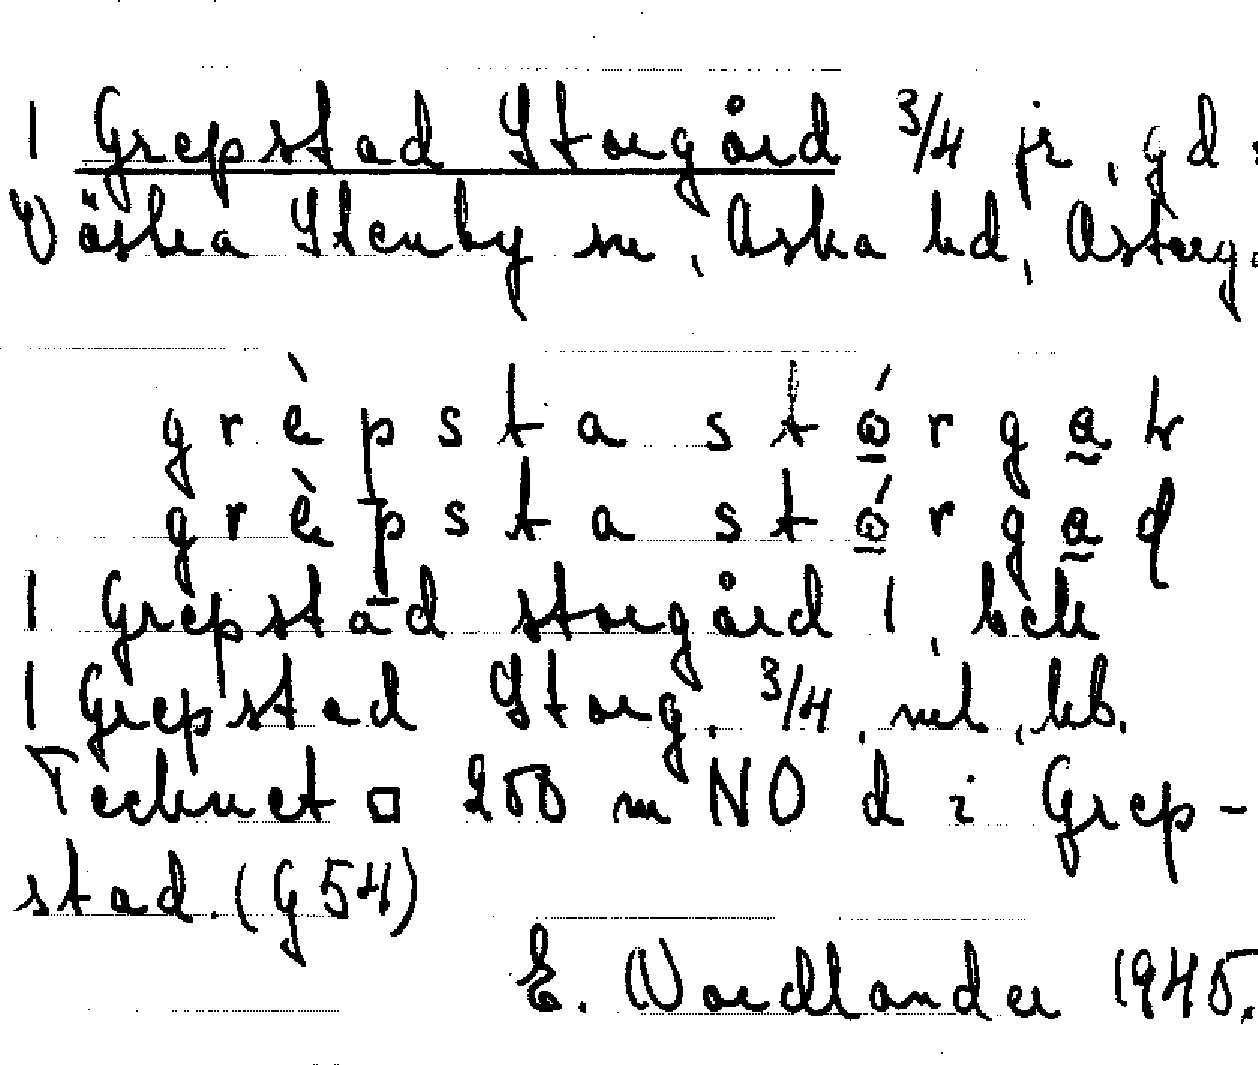 1 Grepstad Storgård 3/4 jr, gd
Västra Stenby sn, Aska hd, Österg.
grèpsta stǿrga
grèpsta stǿrgaɖ
1 Grepstad storgård 1, bch
1 Grepstad Storg. 3/4, ml, kb.
Tecknet □ 200 m NO d i Grep-
stad. (G 54)
E. Nordlander 1945.